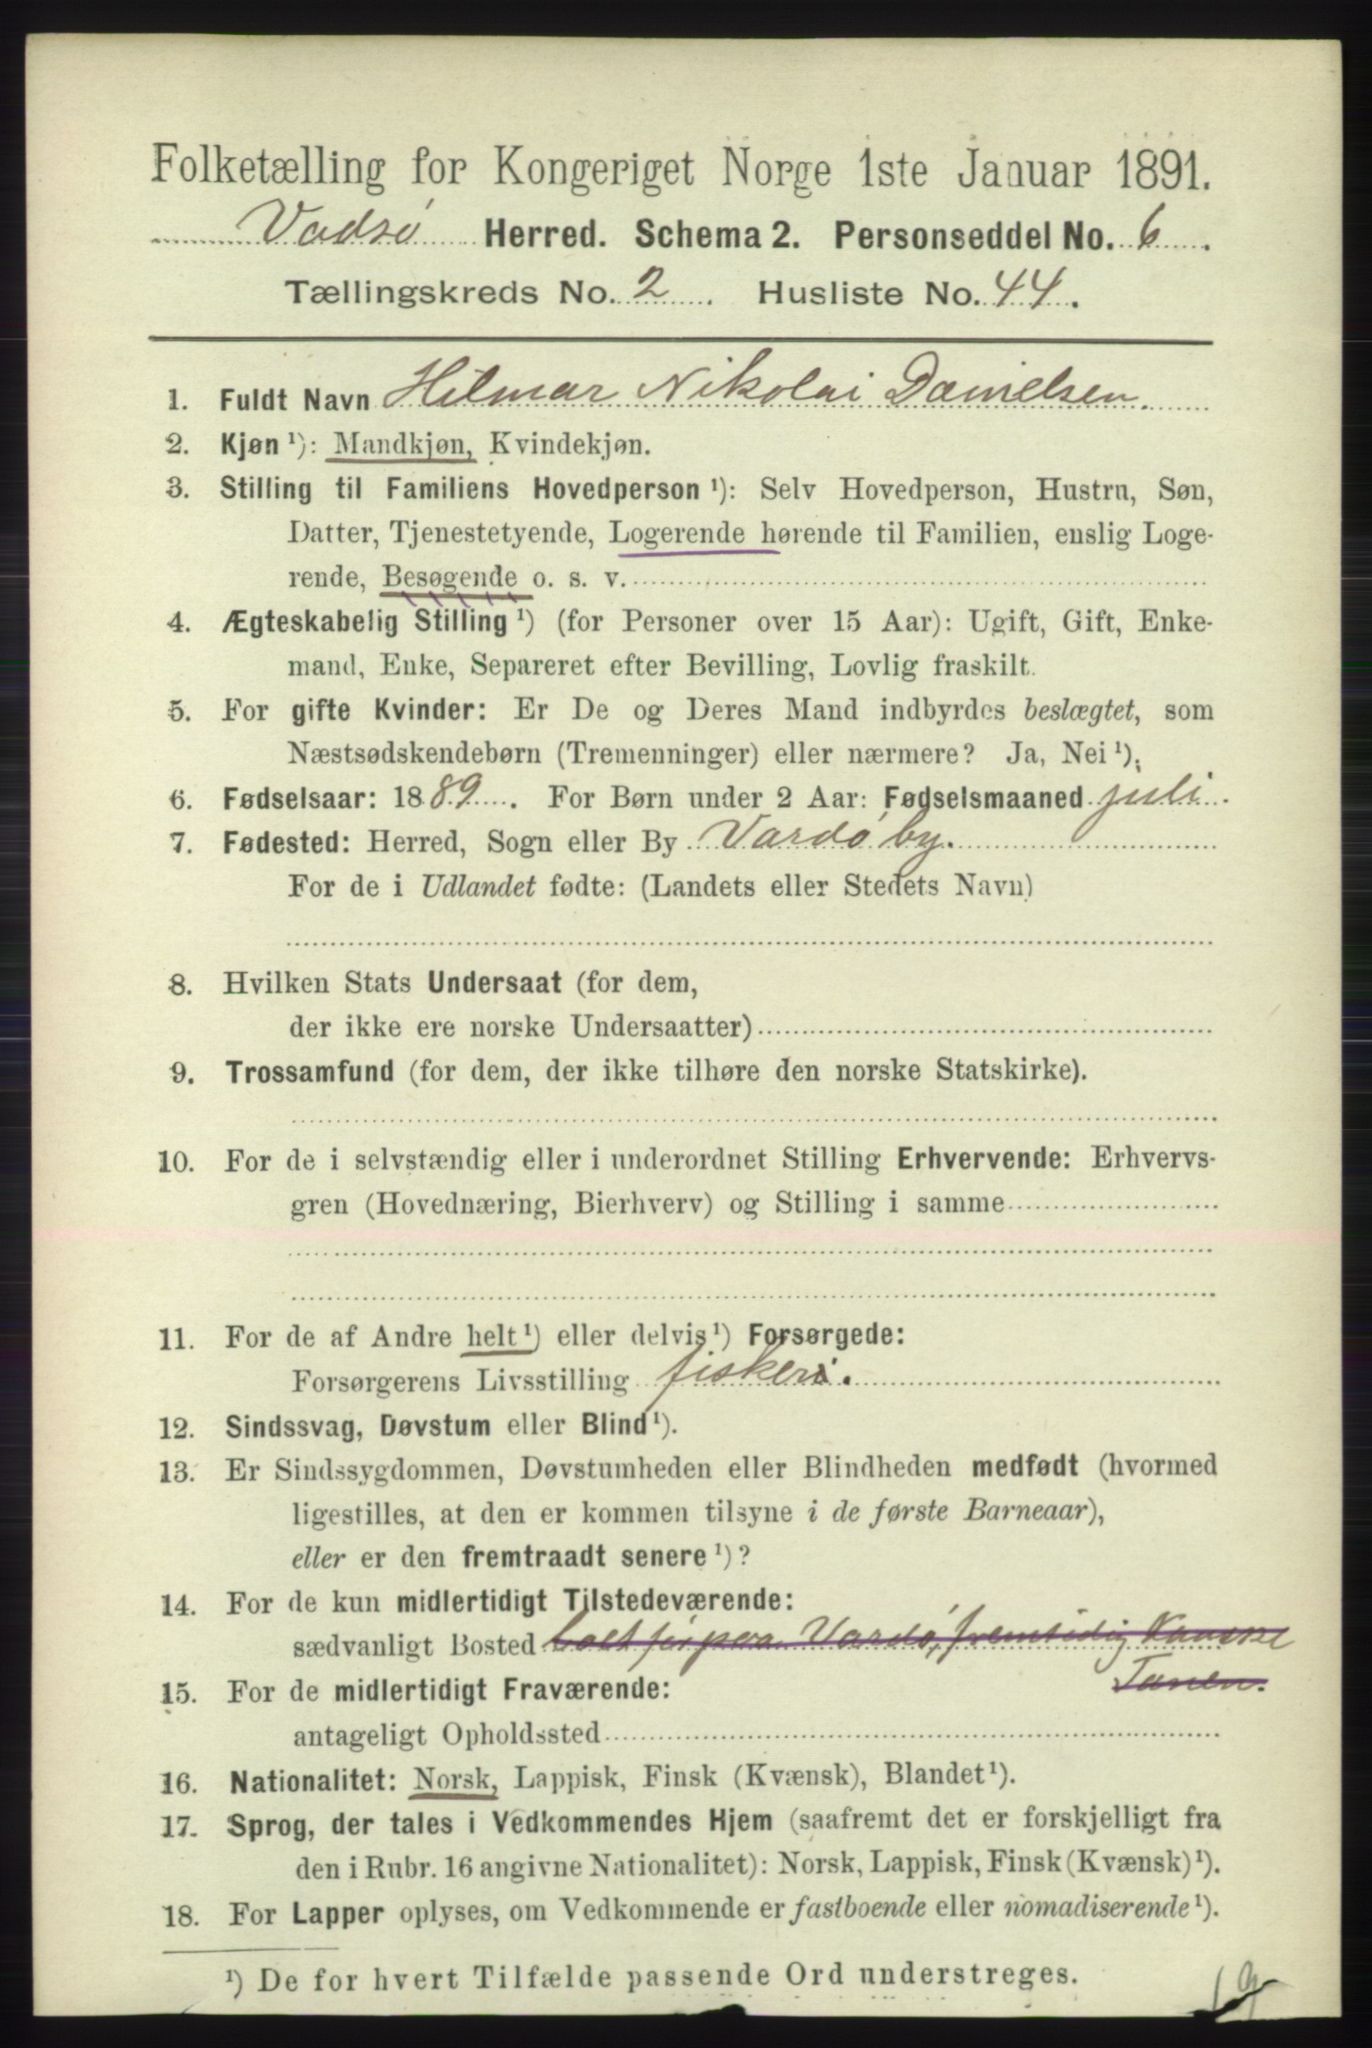 Folketælling for Kongeriget Norge 1ste Januar 1891.
Vadsø Herred. Schema 2. Personseddel No. 6.
Tællingskreds No. 2. Husliste No. 44.
1. Fuldt Navn Hilmar Nikolai Danielsen.
2. Kjøn ¹): Mandkjøn, Kvindekjøn.
3. Stilling til Familiens Hovedperson ¹): Selv Hovedperson, Hustru, Søn,
Datter, Tjenestetyende, Logerende hørende til Familien, enslig Loge-
rende, Besøgende o. s. v.
4. Ægteskabelig Stilling ¹) (for Personer over 15 Aar): Ugift, Gift, Enke-
mand, Enke, Separeret efter Bevilling, Lovlig fraskilt.
5. For gifte Kvinder: Er De og Deres Mand indbyrdes beslægtet, som
Næstsødskendebørn (Tremenninger) eller nærmere? Ja, Nei ¹).
6. Fødselsaar: 1889. For Børn under 2 Aar: Fødselsmaaned juli.
7. Fødested: Herred, Sogn eller By Vardø by.
For de i Udlandet fødte: (Landets eller Stedets Navn)
8. Hvilken Stats Undersaat (for dem,
der ikke ere norske Undersaatter)
9. Trossamfund (for dem, der ikke tilhøre den norske Statskirke).
10. For de i selvstændig eller i underordnet Stilling Erhvervende: Erhvervs-
gren (Hovednæring, Bierhverv) og Stilling i samme
11. For de af Andre helt ¹) eller delvis ¹) Forsørgede:
Forsørgerens Livsstilling fisker.
12. Sindssvag, Døvstum eller Blind ¹).
13. Er Sindssygdommen, Døvstumheden eller Blindheden medfødt (hvormed
ligestilles, at den er kommen tilsyne i de første Barneaar),
eller er den fremtraadt senere ¹)?
14. For de kun midlertidigt Tilstedeværende:
sædvanligt Bosted før paa Vardø, fremtidig
Tanen.
15. For de midlertidigt Fraværende:
antageligt Opholdssted
16. Nationalitet: Norsk, Lappisk, Finsk (Kvænsk), Blandet ¹).
17. Sprog, der tales i Vedkommendes Hjem (saafremt det er forskjelligt fra
den i Rubr. 16 angivne Nationalitet): Norsk, Lappisk, Finsk (Kvænsk) ¹).
18. For Lapper oplyses, om Vedkommende er fastboende eller nomadiserende ¹).
¹) De for hvert Tilfælde passende Ord understreges.
19